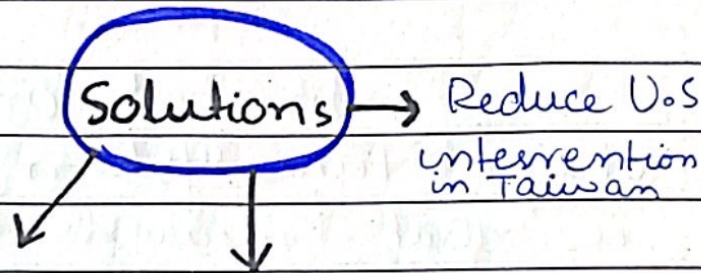 Solutions → Reduce U.S
intervention
in Taiwan